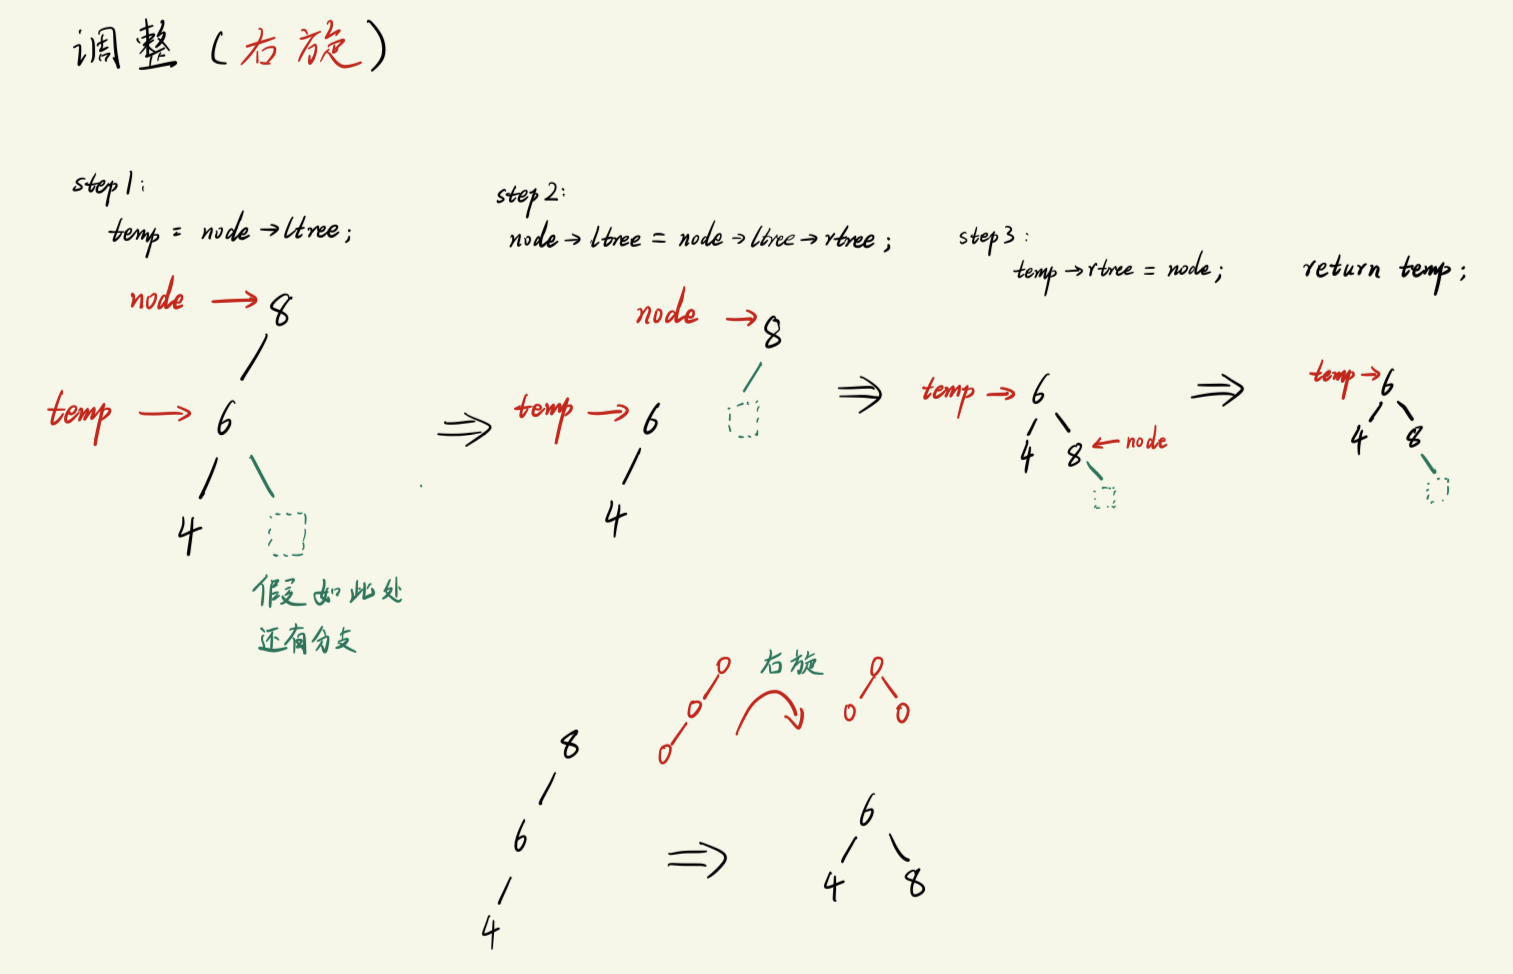 调整（右旋）
step1:
temp = node→ltree;
node → 8
temp → 6
4
假如此处
还有分支
step2:
node→ltree = node→ltree→rtree;
node → 8
temp → 6
4
step3:
temp→rtree = node;
temp → 6
4 8 ← node
return temp;
temp → 6
4 8
右旋
8
6
4
6
4 8